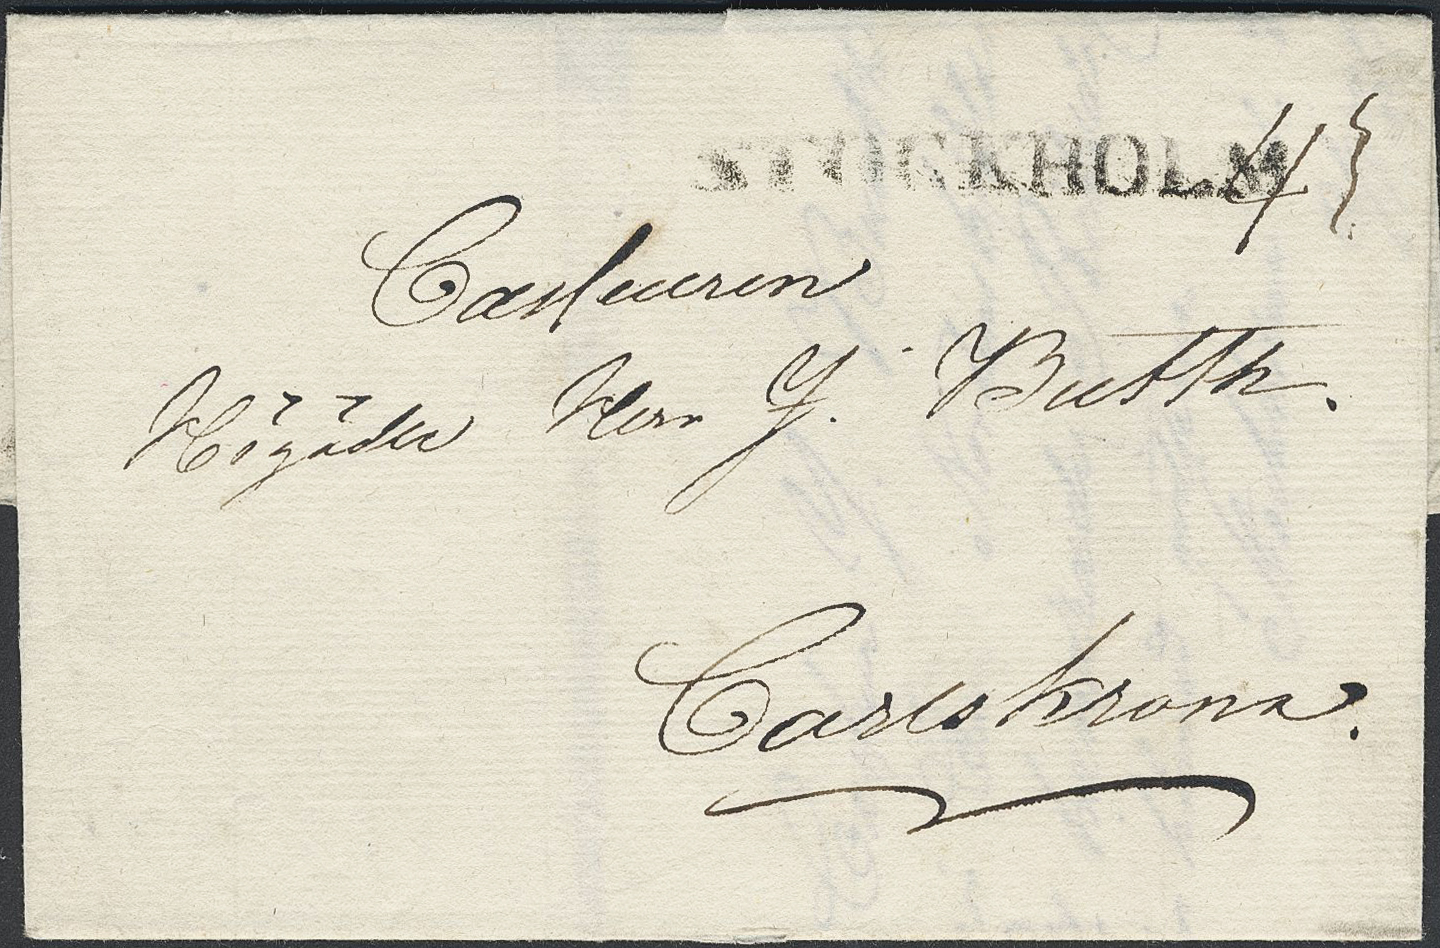 STOCKHOLM
Cadeuren
Högädla Herr J. Butth.
Carlskrona.